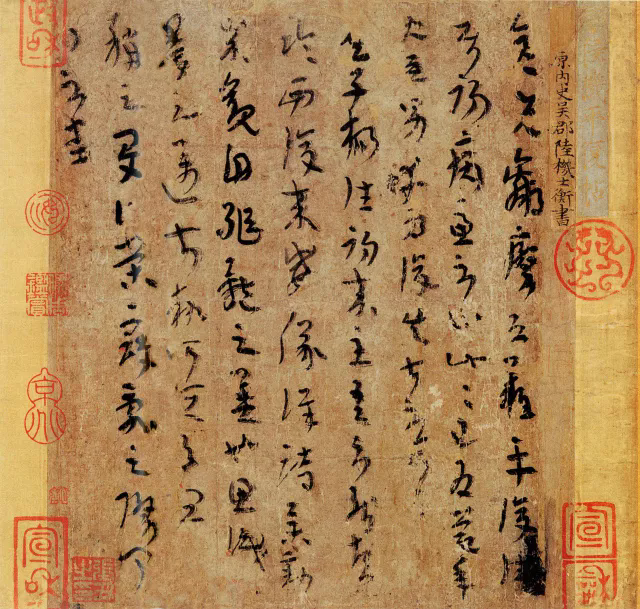 原內史吳郡陸機士衡書
彦先羸瘵恐難平復往屬
初病慮不止此此已為慶承
使唯男幸為復失前憂耳
吳子楊往初來主吾不能盡
臨西復來威儀詳跱舉動
成觀自軀體之美也思識
量之邁前執所恒有宜
稱之夏伯榮寇亂之際聞
問不悉